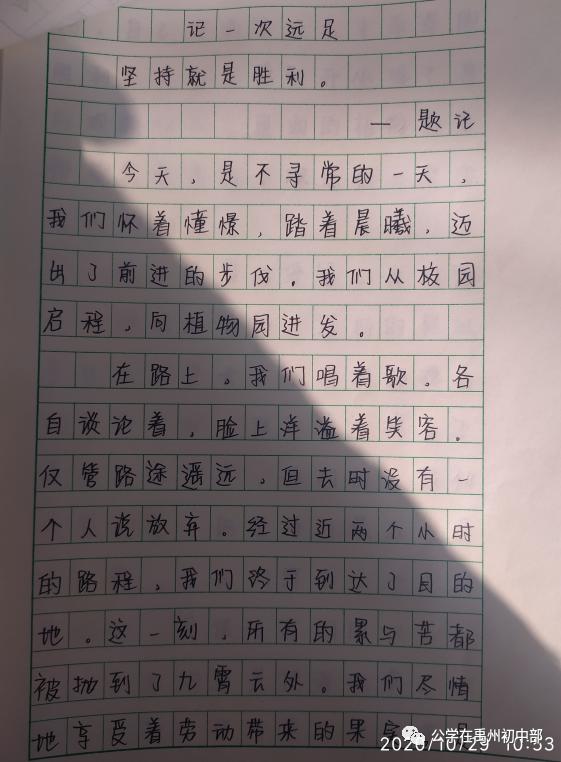 记一次远足
坚持就是胜利。
— 题记
今天,是不寻常的一天,
我们怀着憧憬,踏着晨曦,迈
出了前进的步伐。我们从校园
启程,向植物园进发。
在路上。我们唱着歌。各
自谈论着,脸上洋溢着笑容。
仅管路途遥远,但去时没有一
个人说放弃。经过近两个小时
的路程,我们终于到达了目的
地。这一刻,所有的累与苦都
被抛到了九霄云外。我们尽情
地享受着劳动带来的果实
公学在禹州初中部
2020/10/29 10:53